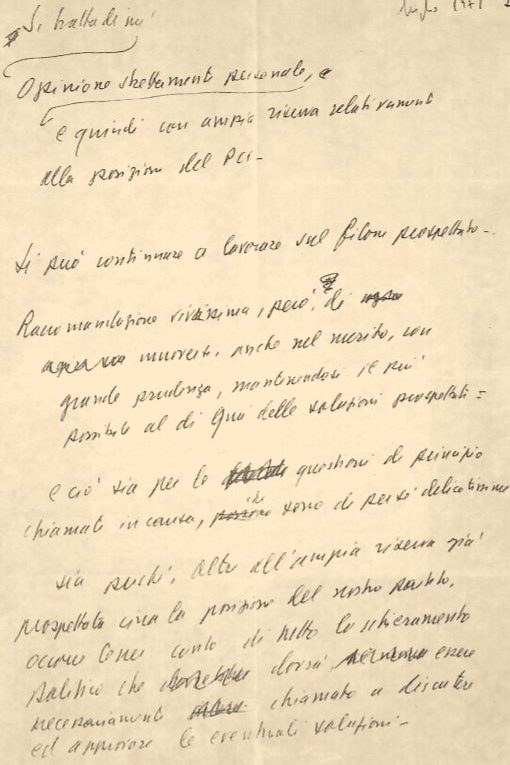 Si tratta di mia
luglio 1971
Opinione strettamente personale, e
e quindi con ampia riserva relativamente
alla posizione del Pci -
Si può continuare a lavorare sul filone prospettato -
Raccomandazione vivissima, però, di
muoversi, anche nel merito, con
grande prudenza, mantenendosi il più
possibile al di qua delle soluzioni prospettate =
e ciò sia per le questioni di principio
chiamate in causa, che sono di per sé delicatissime
sia perché, oltre all'ampia riserva già
prospettata circa la posizione del nostro partito,
occorre tener conto di tutto lo schieramento
politico che dovrà essere
necessariamente chiamato a discutere
ed approvare le eventuali soluzioni -